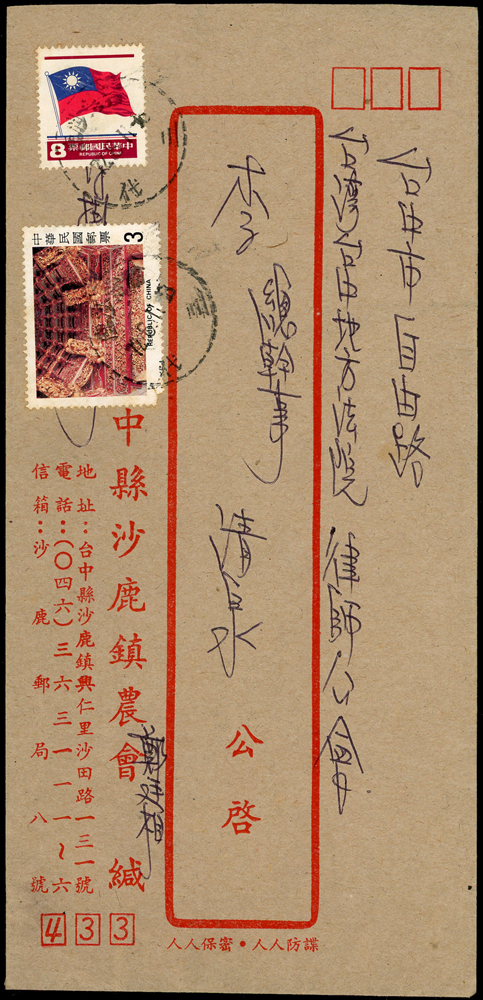 台中市自由路
台灣台中地方法院 律師公會
李總幹事 清水 公啓
中縣沙鹿鎮農會 緘
地址：台中縣沙鹿鎮興仁里沙田路一三一號
電話：(〇四六)三六三一一一～六
信箱：沙鹿郵局八號
433
人人保密•人人防諜
中華民國郵票
REPUBLIC OF CHINA
8
中華民國郵票
3
REPUBLIC OF CHINA